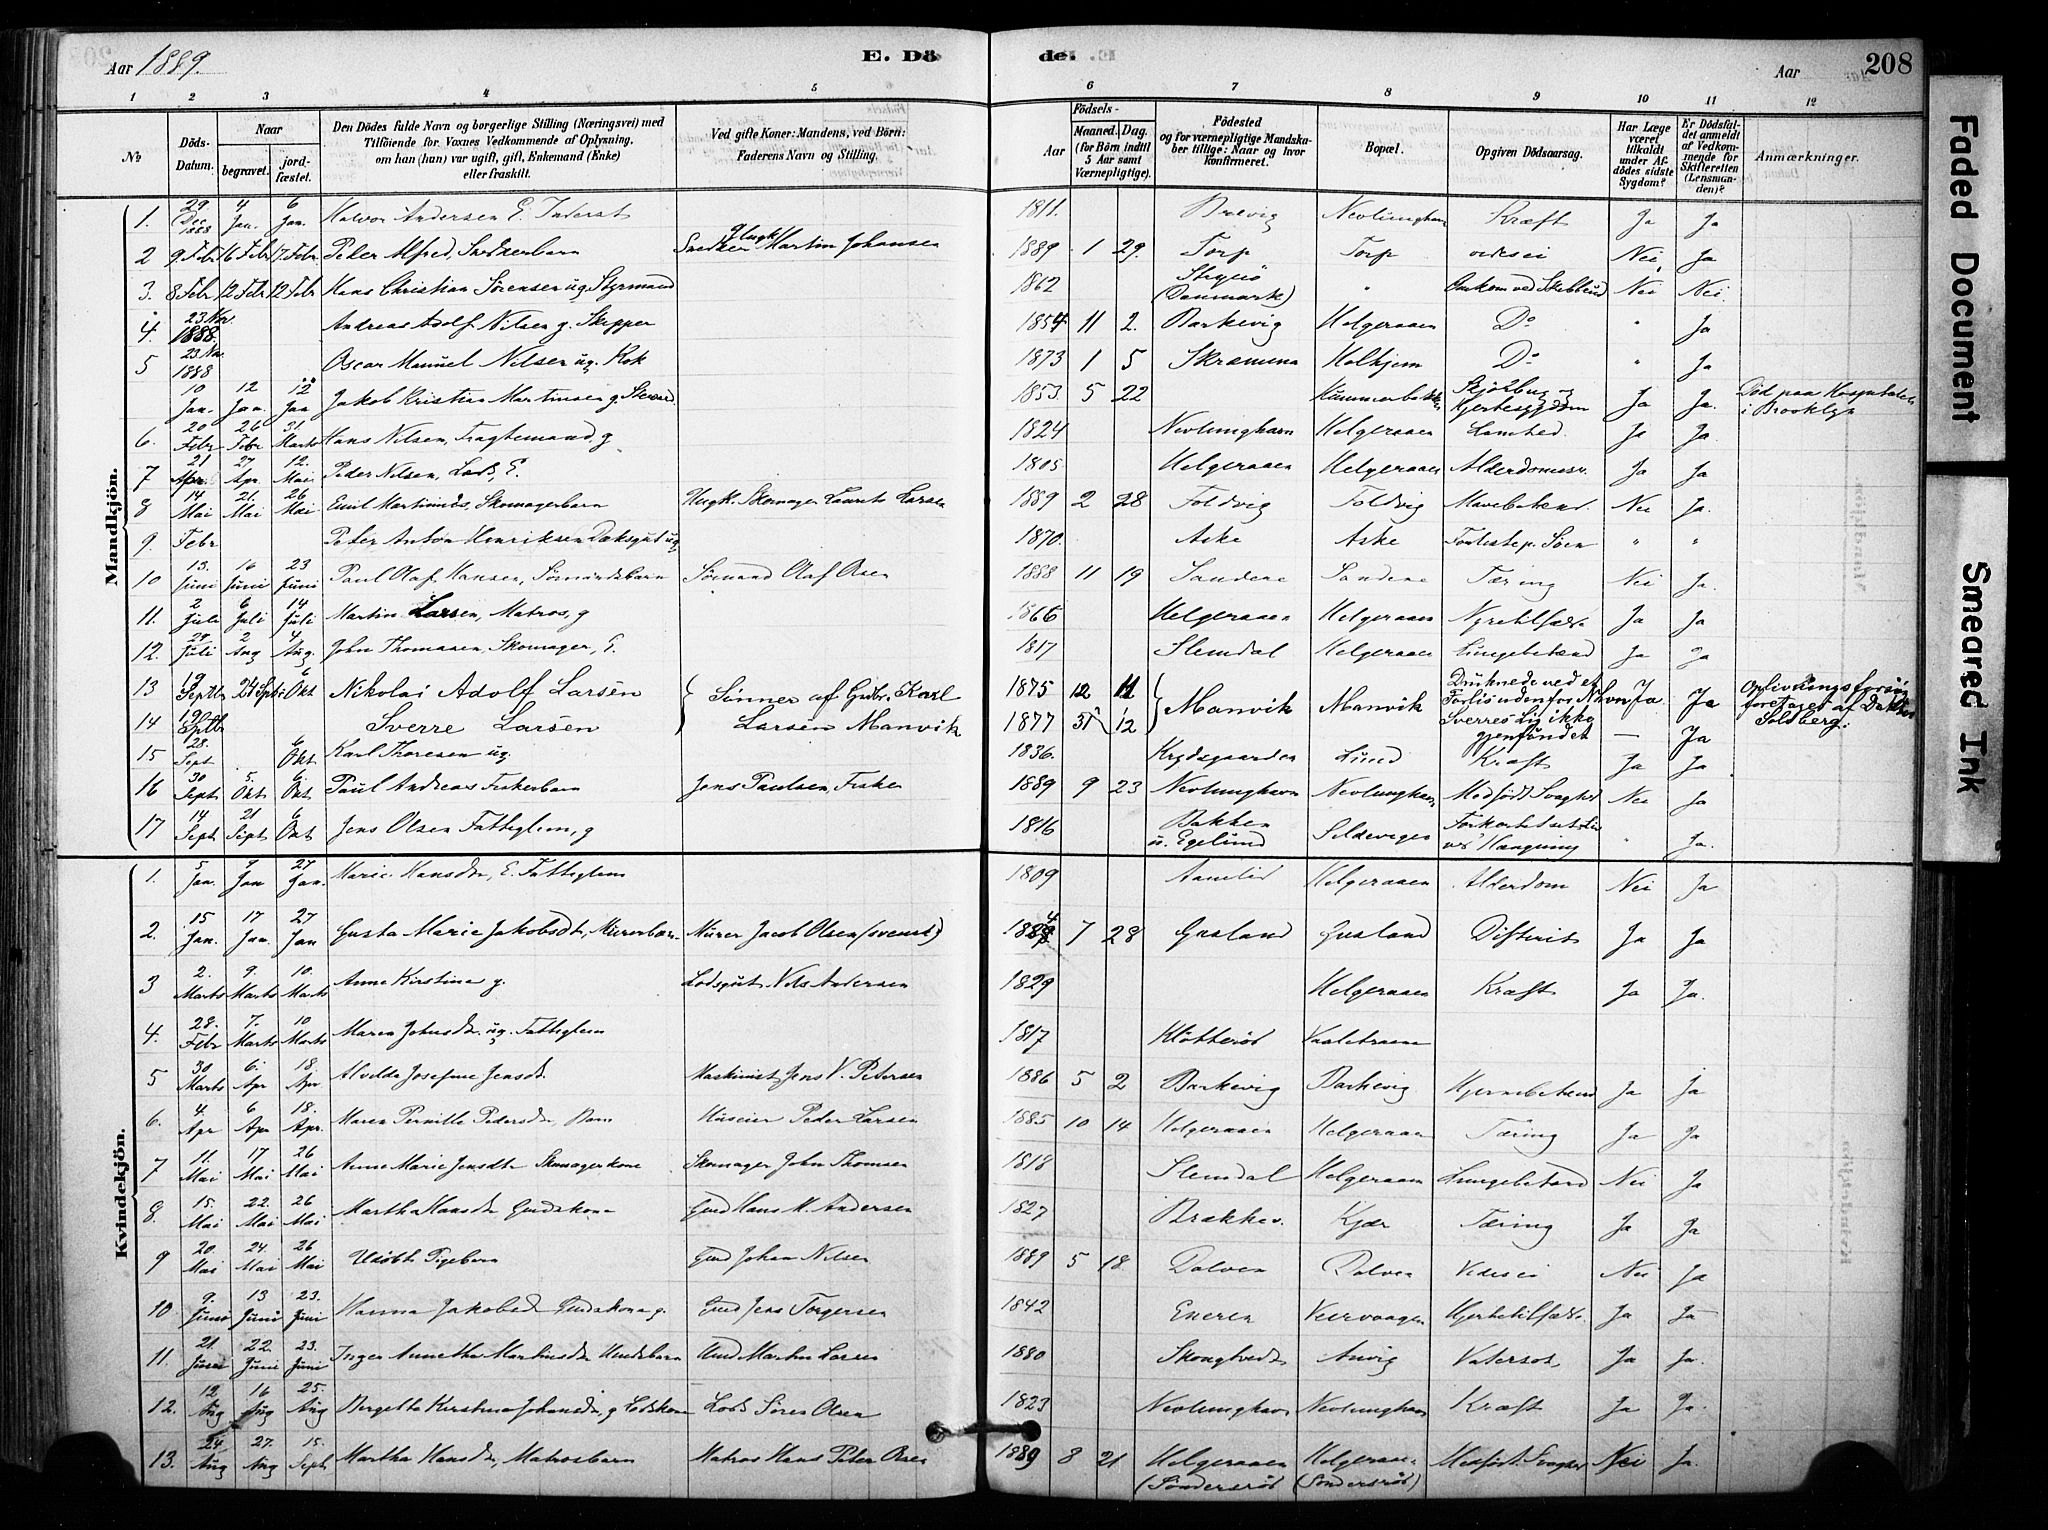 Aar 1889. E. Dö de. Aar 208
1 2 3 4 5 6 7 8 9 10 11 12
№ Döds-Datum. Naar begravet. jordfæstet. Den Dödes fulde Navn og borgerlige Stilling (Næringsvei) med Tilföiende for Voxnes Vedkommende af Oplysning, om han (hun) var ugift, gift, Enkemand (Enke) eller fraskilt. Ved gifte Koner: Mandens, ved Börn: Faderens Navn og Stilling. Födsels- Aar Maaned. Dag. (for Börn indtil 5 Aar samt Værnepligtige). Födested og for værnepligtige Mandskaber tillige: Naar og hvor konfirmeret. Bopæl. Opgiven Dödsaarsag. Har Læge været tilkaldt under Afdödes sidste Sygdom? Er Dödsfaldet anmeldt af Vedkommende for Skifteretten (Lensmanden)? Anmærkninger.
Mandkjön.
1. 29 Dec 1888 4 Jan. 6 Jan. Halvor Andersen E. Inderst 1811. Brevig Nevlunghavn Kræft Ja Ja
2 9 Febr 16 Febr 17 Febr Peter Alfred, Snedkerbarn Snedker Ungk. Martin Johansen 1889 1 29. Torp Torp vides ei Nei Ja
3. 8 Febr 12 Febr 12 Febr Hans Christian Sörensen ug. Styrmand 1862 (Danmark) " Omkom ved Skibbrud Nei Nei
4. 23 Nov. 1888. Andreas Adolf Nilsen g. Skipper 1854 11 2. Barkevig Helgeraaen Do " Ja
5 23 Nov. 1888 Oscar Manuel Nilsen ug. Kok 1873 1 5 Skramma Holkjem Do " Ja
10 Jan. 12 Jan. 12 Jan Jakob Kristian Martinsen g. Steward. 1853. 5 22 Hummerbakken Hjertesygdom Ja Ja. Död paa Hospitalet i Brooklyn
6. 20 Febr 26 Febr 31. Marts Hans Nilsen, Fragtemand, g 1824 Nevlunghavn Helgeraaen Lamhed. Ja Ja.
7 21 Apr. 27 Apr. 12. Mai Peder Nilsen, Lods, E. 1805. Helgeraaen Helgeraaen Alderdomssv. Ja Ja
8 14 Mai 21. Mai 26 Mai Emil Martinius, Skomagerbarn Ungk. Skomager Laurits Larsen 1889 2 28 Foldvig Foldvig Mavebetænd. Nei Ja.
9. Febr Peter Anton Henriksen Dæksgut ug 1870. Aske Aske Forlist p. Söen " "
10 13. Juni 16 Juni 23 Juni Paul Olaf Hansen, Sömandsbarn Sömand Olaf Olsen 1888 11 19 Sandene Sandene Tæring Nei Ja.
11. 2 Juli 6 Juli 14 Juli Martin Larsen, Matros, g 1866 Helgeraaen Helgeraaen Nyretilfælde Ja Ja
12. 29 Juli 2 Aug 4 Aug. John Thomasen, Skomager, E. 1817 Slemdal Helgeraaen Lungebetænd Ja Ja
13 19 Septbr 24 Sept 6 Okt Nikolai Adolf Larsen } Sönner af Grdbr. Karl 1875 12 11 } Manvik Manvik Druknede ved et Forlis udenfor Nhvn Ja Ja Oplivningsforsög foretaget af Doktor Solberg.
14 19 Sptbr Sverre Larsen Larsen Manvik 1877 31 12 Sverres Lig ikke gjenfundet — Ja
15 28. Sept 6 Okt Karl Thoresen ug 1836. Krydsgaarden Lund Kræft Ja Ja
16 30 Sept 5. Okt 6. Okt Paul Andreas Fiskerbarn Jens Paulsen, Fisker 1889 9 23 Nevlunghavn Nevlunghavn Medfödt Svaghed Nei Ja
17 14 Sept 21 Sept 6 Okt Jens Olsen Fattiglem, g 1816 Bakken u. Egelund Forkortet sit Liv ved Hængning " Ja.
Kvindekjön.
1. 5 Jan. 9 Jan 27 Jan. Marie Hansdr, E. Fattiglem 1809 Aamelid Helgeraaen Alderdom Nei Ja
2. 15 Jan. 17 Jan. 27 Jan Gusta Marie Jakobsdtr, Mürerbarn Mürer Jacob Olsen (svensk) 1884 7 28 Gusland Gusland Difterit Ja Ja
3 2. Marts 9. Marts 10. Marts Anne Kirstine g. Lodsgut Nils Andersen 1829 Helgeraaen Kræft Ja Ja.
4. 28. Febr 7. Marts 10 Marts Maren Johnsdr. ug. Fattiglem 1817 Klötteröd
5 30 Marts 6. Apr 18. Apr. Alvilde Josefine Jensdr. Maskinist Jens V. Petersen 1886 5 2 Barkevig Barkevig Hjernebetænd Ja Ja
6. 4. Apr 6 Apr 18. Apr. Maren Pernille Pedersdr, Barn Huseier Peder Larsen 1885 10 14 Helgeraaen Helgeraaen Tæring Ja Ja
7 11. Mai 17 Mai 26 Mai Anne Marie Jensdtr Skomagerkone Skomager John Thomsen 1818 Slemdal Helgeraaen Lungebetænd Nei Ja
8. 15. Mai 22. Mai 26 Mai Martha Hansdr Gmdskone Gmd Hans M. Andersen 1827 Brække v. Kjær Tæring Ja Ja
9 20. Mai 24. Mai 26 Mai Udöbt Pigebarn Gmd Johan Nilsen 1889 5 18. Dolven Dolven Vides ei Nei Ja
10. 9. Juni 13 Juni 23. Juni Hanna Jakobsd Gmdskone g. Gmd Jens Torgersen 1842 Eneren Veervaagen Hjertetilfælde Ja Ja
11. 21. Juni 22. Juni 23. Juni Inger Annetha Martinsdr Umdsbarn Umd Martin Larsen 1880 Skougtvedt Anvig Vatersot Ja Ja.
12. 12. Aug 16 Aug 25. Aug Bergitte Kirstine Johansdr, g Lodskone Lods Sören Olsen 1823 Nevlunghavn Nevlunghavn Kræft Ja Ja.
13. 24. Aug 27. Aug 15. Sept Martha Hansdr, Matrosbarn Matros Hans Peter Olsen 1889 8 21 Helgeraaen (Söndersröd Helgeraaen (Söndersröd) Medfödt Svaghed Nei Ja.
Faded Document
Smeared Ink